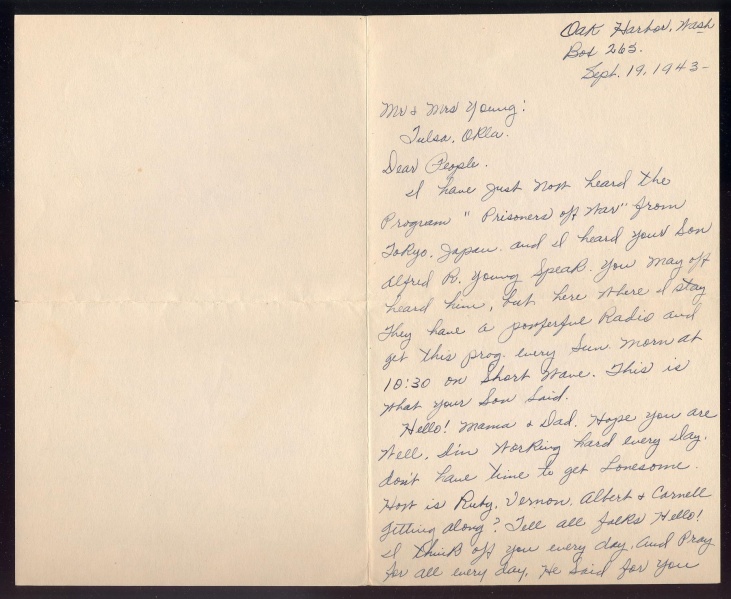 Oak Harbor, Wash
Box 265.
Sept. 19, 1943-
Mr & Mrs Young:
Tulsa, Okla.
Dear People.
I have just now heard the
Program "Prisoners off War" from
Tokyo. Japan. and I heard your Son
Alfred R. Young Speak. You may off
heard him, but here where I stay
They have a powferful Radio and
get this prog. every Sun. Morn at
10:30 on Short Wave. This is
what your Son Said.
Hello! Mama & Dad. Hope you are
Well, I'm Working hard every day.
don't have time to get Lonesome.
How is Ruby, Vernon, Albert & Cornell
Getting along? Tell all folks Hello!
I think off you every day, and Pray
for all every day, He Said for you